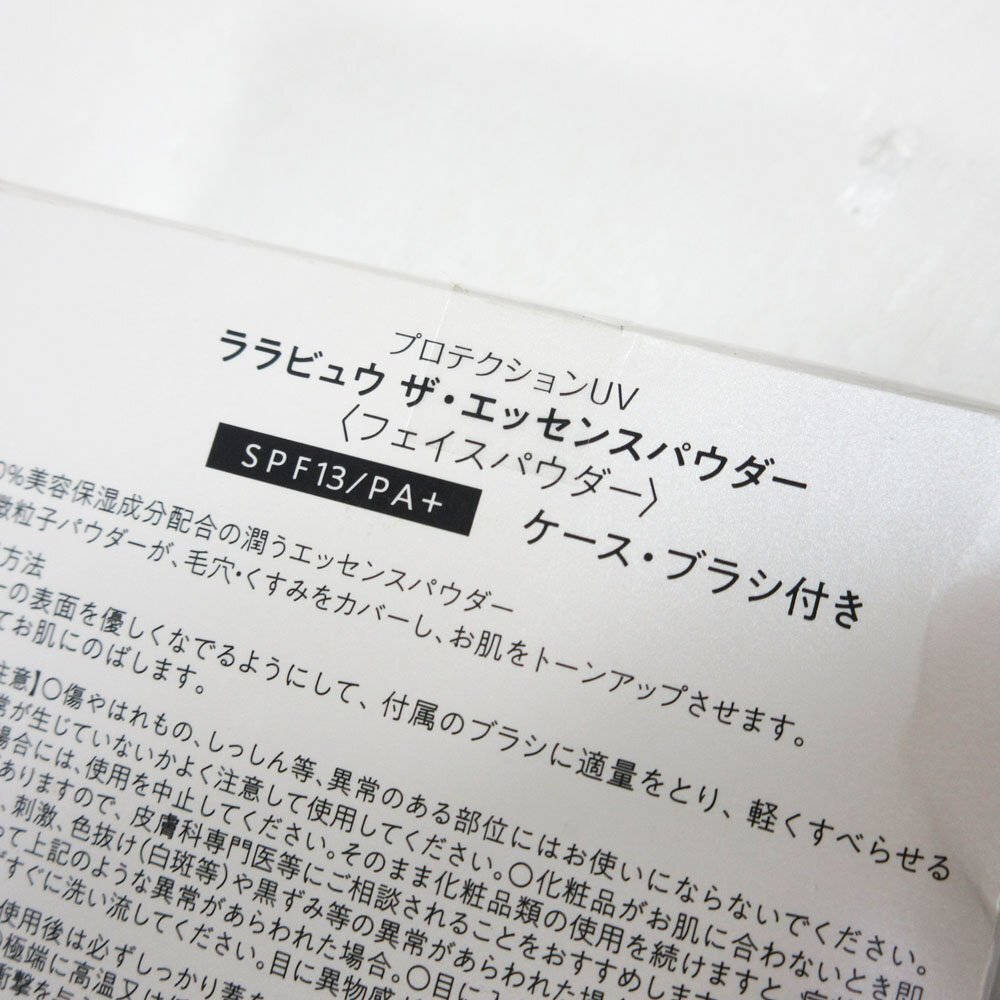 プロテクションUV
ララビュウ ザ・エッセンスパウダー
〈フェイスパウダー〉
SPF13/PA+
ケース・ブラシ付き
0%美容保湿成分配合の潤うエッセンスパウダー
微粒子パウダーが、毛穴・くすみをカバーし、お肌をトーンアップさせます。
方法
ーの表面を優しくなでるようにして、付属のブラシに適量をとり、軽くすべらせる
てお肌にのばします。
注意】○傷やはれもの、しっしん等、異常のある部位にはお使いにならないでください。
常が生じていないかよく注意して使用してください。○化粧品がお肌に合わないとき即
場合には、使用を中止してください。そのまま化粧品類の使用を続けますと、
がありますので、皮膚科専門医等にご相談されることをおすすめしま
、刺激、色抜け(白斑等)や黒ずみ等の異常があらわれた場
って上記のような異常があらわれた場合。○目に
すぐに洗い流してください。目に異物感
使用後は必ずしっかり蓋を
極端に高温又は
衝撃を与